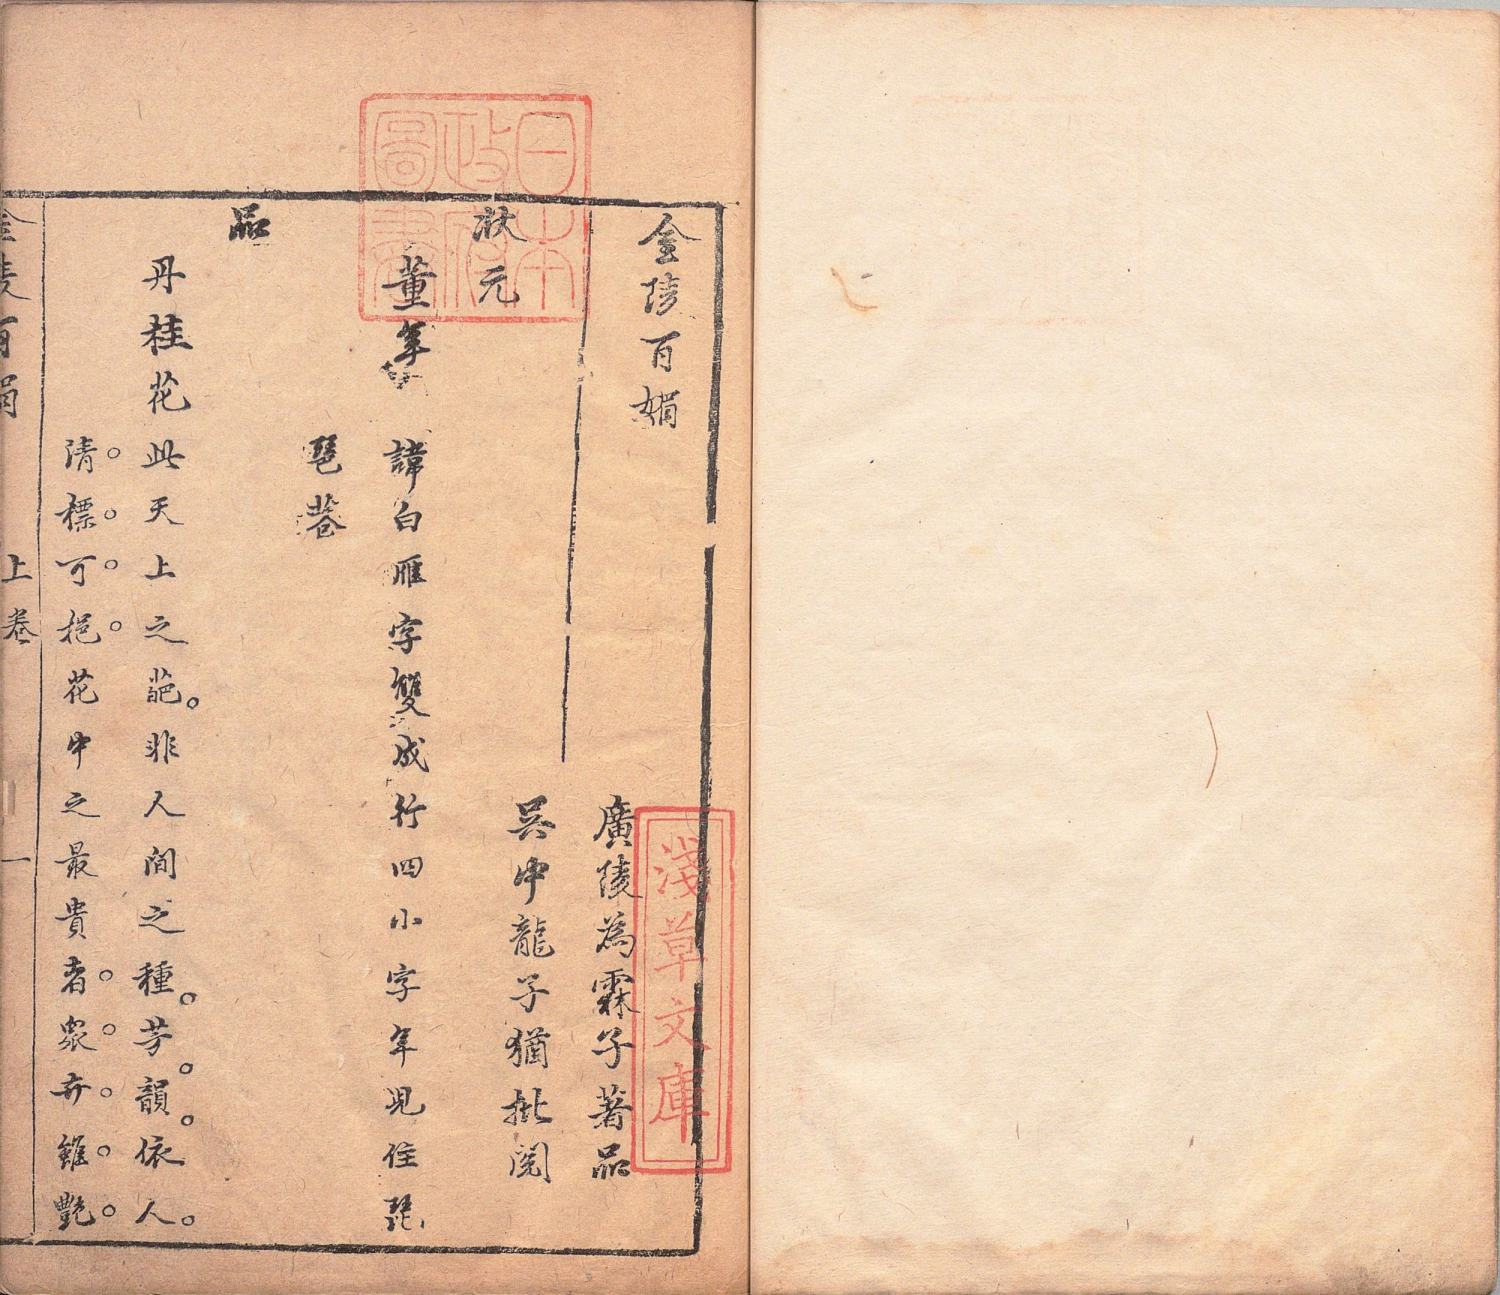 金陵百媚
廣陵為霖子著品
吳中龍子猶批閱
狀元
董年 諱白雁字雙成行四小字年兒住琵
琶巷
品
丹桂花 此天上之葩非人間之種芳韻依人
清標可挹花中之最貴者眾卉雖艷
金陵百媚 上卷 一
日本
政府
圖書
淺草文庫